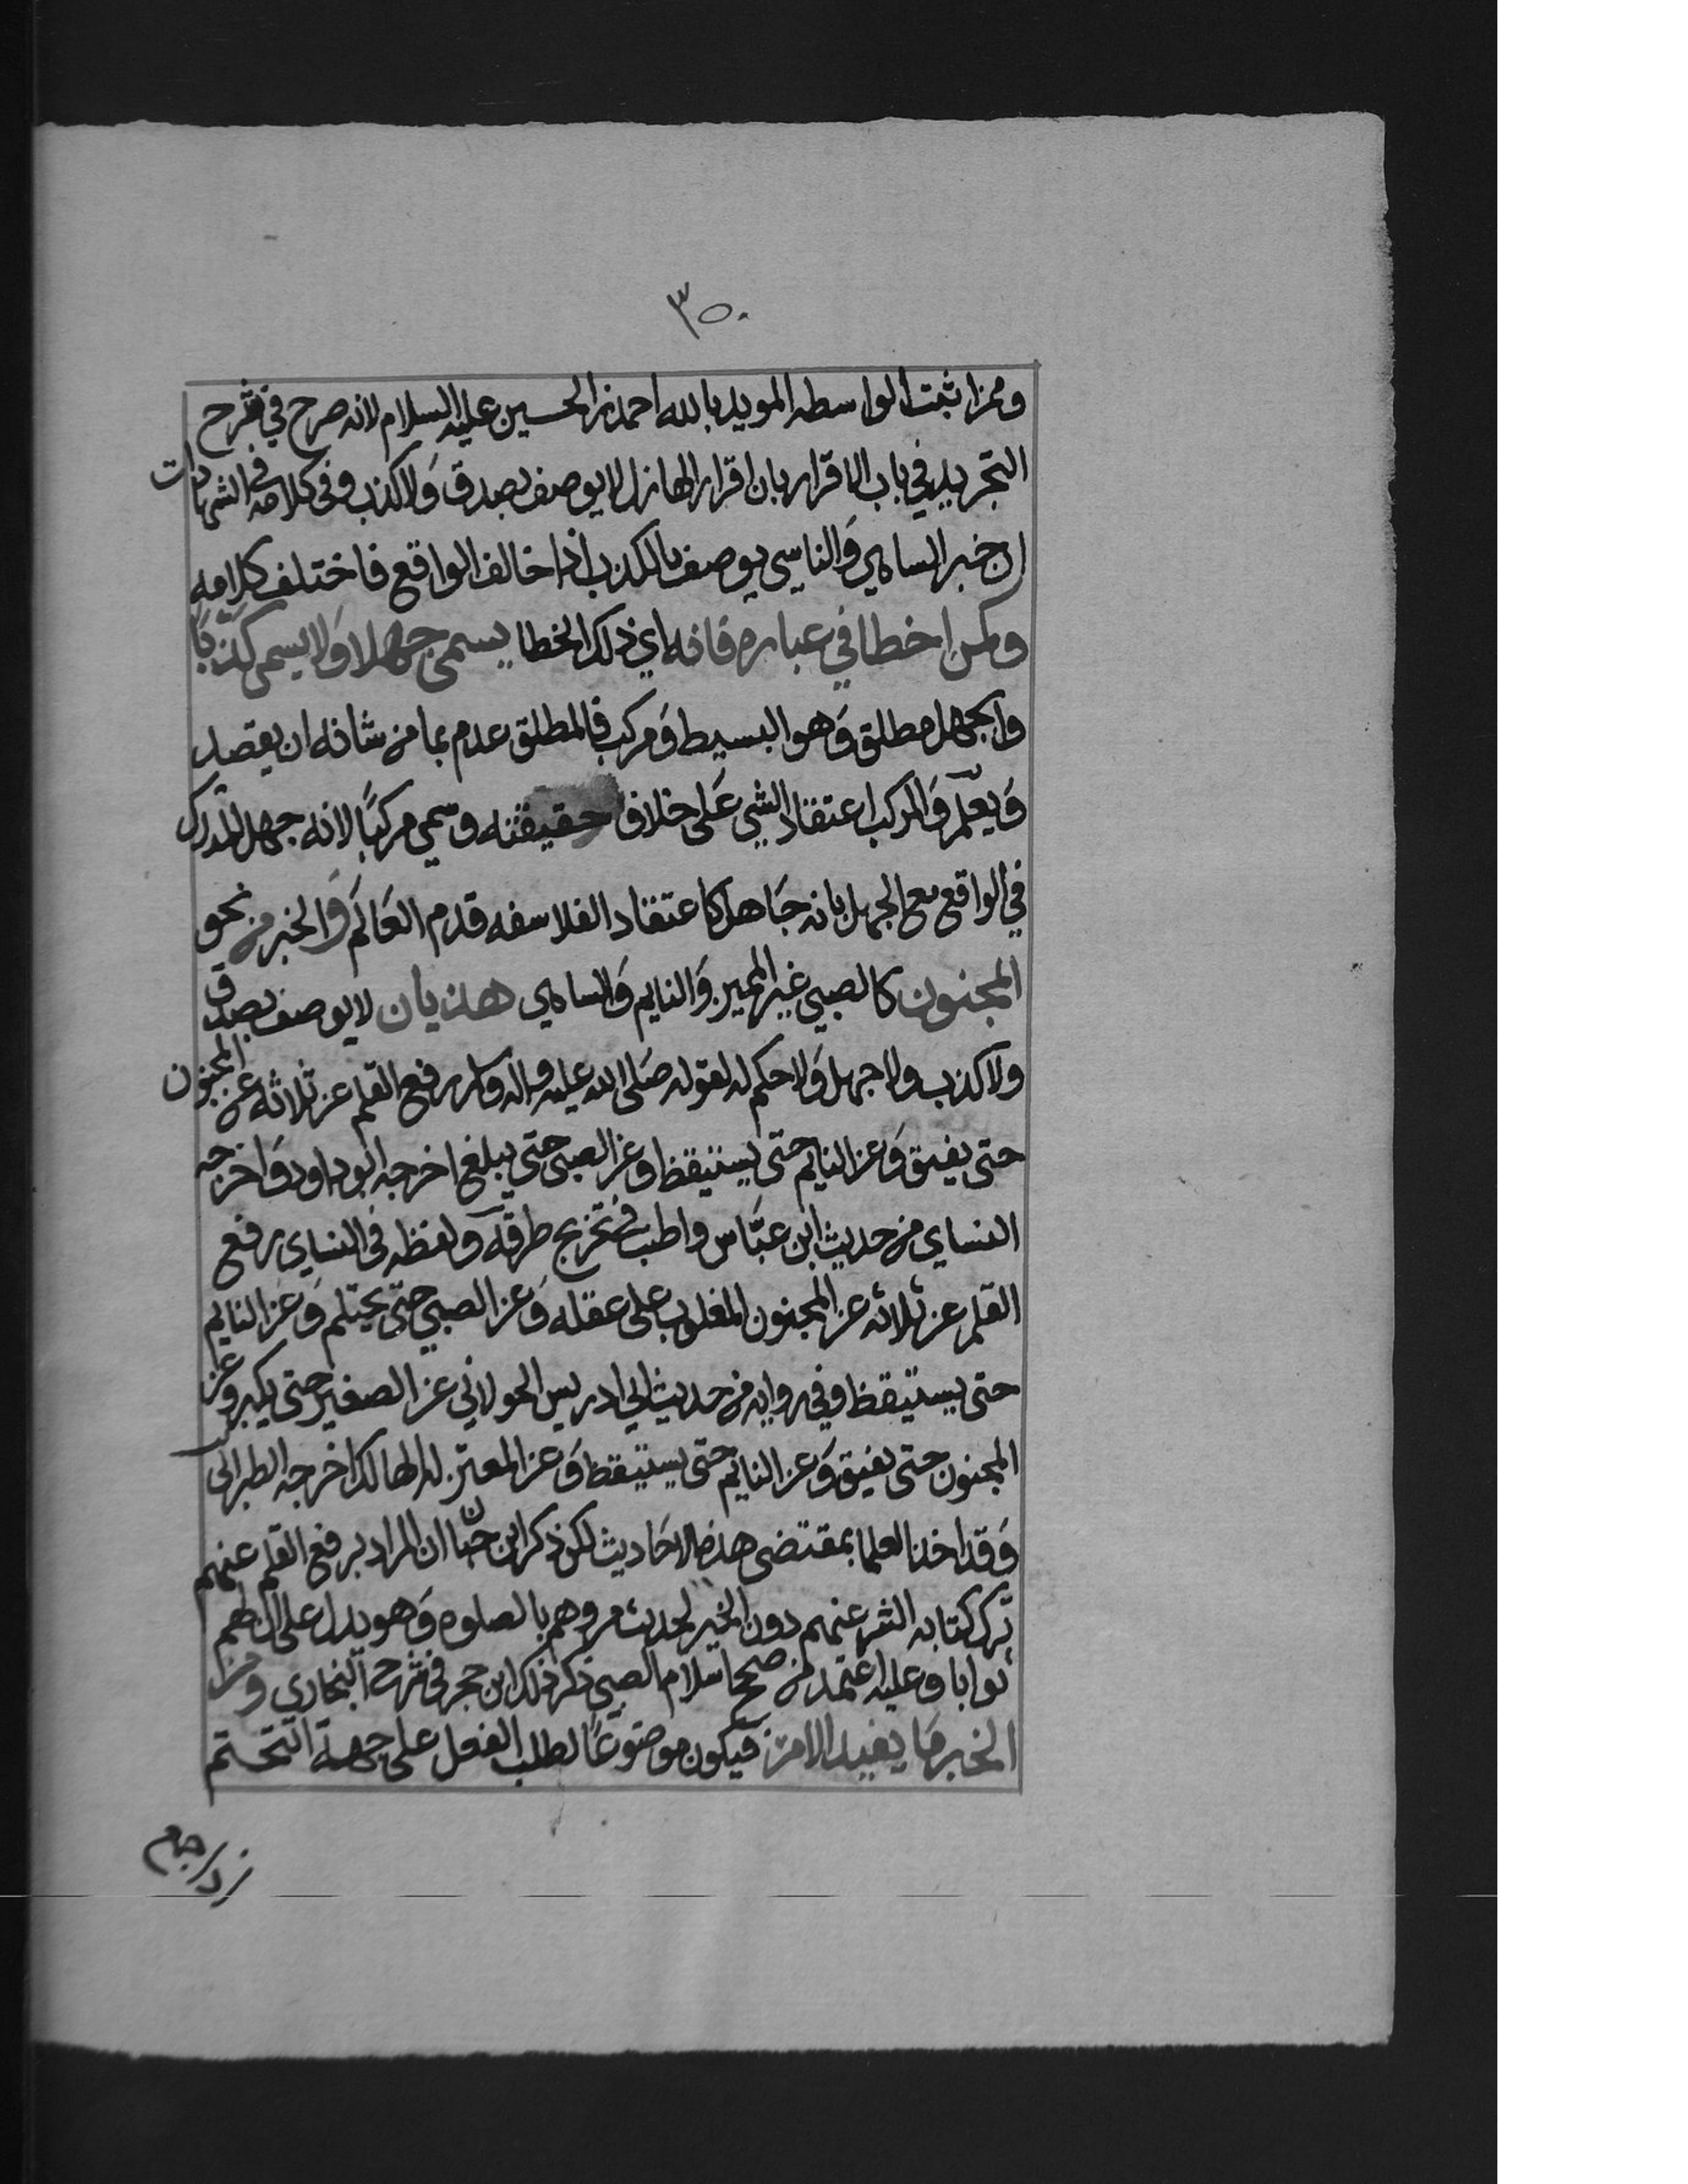 ٣٥٠
وممن اثبت الواسطه المويد بالله احمد بن الحسين عليه السلام لانه صرح في شرح
التجريد في باب الاقرار بان اقرار الهازل لا يوصف بصدق وَلا كذب وفي كلامه في الشهادات
ان خبر الساهي وَالناسي يوصف بالكذب اذا خالف الواقع فاختلف كلامه
ومن اخطا في عباره فانه اي ذلك الخطا يسمى جهلا وَلا يسمى كذبًا
والجهل مطلق وَهو البسيط وَمركب فالمطلق عدم بما من شانه ان يقصد
وَيعلم وَالمركب اعتقاد الشي عَلى خلاف حقيقته وسمي مركبًا لانه جهل المدرك
في الواقع مع الجهل بانه جَاهل كاعتقاد الفلاسفه قدم العَالم وَالخبر من نحو
المجنون كالصبي غير المميز وَالنايم وَالساهي هذيان لا يوصف بصدق
ولا كذب ولا جهل وَلا حكم له لقوله صَلى الله عليه واله وسلم رفع القلم عن ثلاثه عن المجنون
حتى يفيق وَعن النايم حتى يستيقظ وعن الصبي حتى يبلغ اخرجه ابو داود وَاخرجه
النساي من حديث ابن عبَّاس واطنب في تخريج طرقه ولفظه في النساي رفع
القلم عن ثلاثه عن المجنون المغلوب على عقله وَعن الصبي حتى يحتلم وَعن النايم
حتى يستيقظ وفي روايه من حديث ابي ادريس الخولاني عن الصغير حتى يكبر وعن
المجنون حتى يفيق وَعن النايم حتى يستيقظ وَعن المعتوه الهالك اخرجه الطبراني
وَقد اخذ العلما بمقتضى هذه الاحَاديث لكن ذكر ابن حبّان ان المراد برفع القلم عنهم
ترك كتابه الشر عنهم دون الخير لحديث مروهم بالصلوه وَهو يدل على ان لهم
ثوابا وعليه اعتمد من صحح اسلام الصبي ذكر ذلك ابن حجر في شرح البخاري ومن
الخبر مَا يفيد الامر فيكون موضوعًا لطلب الفعل على جهة التحتم